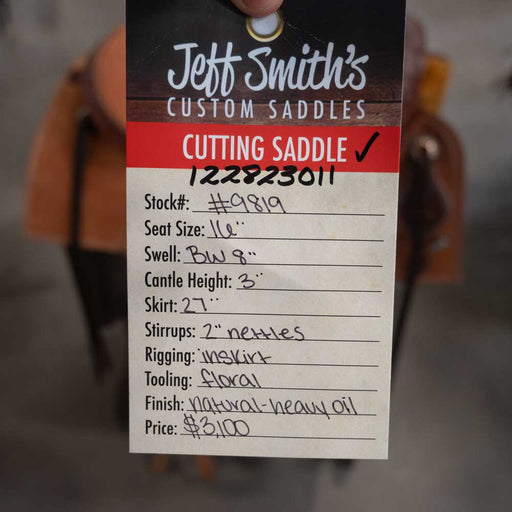 Jeff Smith's
CUSTOM SADDLES
CUTTING SADDLE ✓
122823011
Stock#: #9819
Seat Size: 16"
Swell: BW 8"
Cantle Height: 3"
Skirt: 27"
Stirrups: 2" nettles
Rigging: inskirt
Tooling: floral
Finish: natural-heavy oil
Price: $3,100